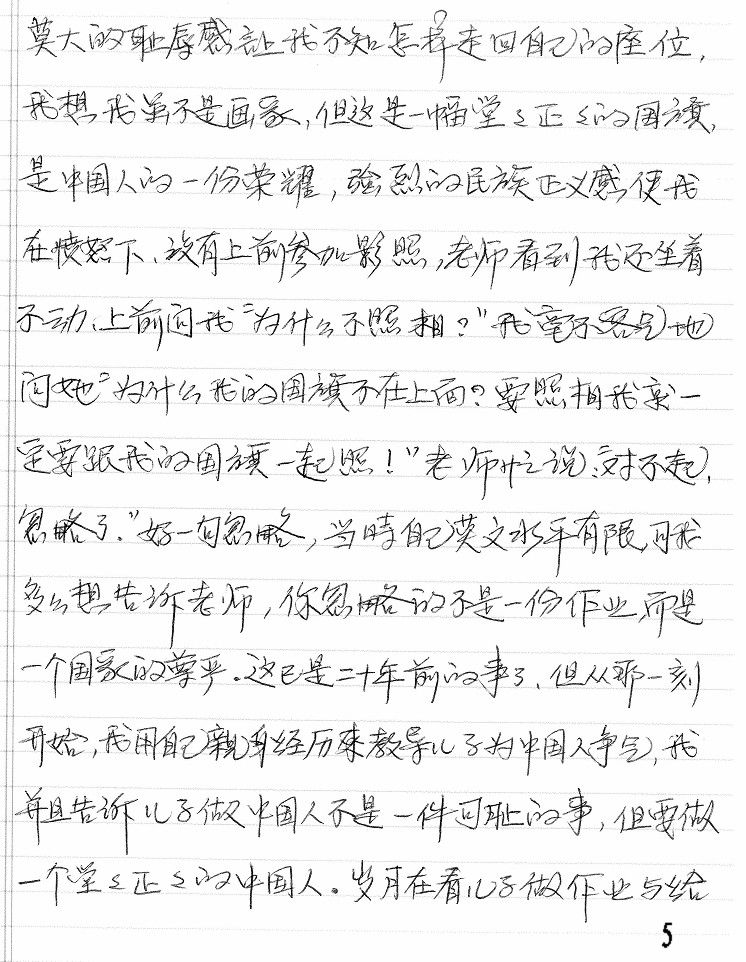 莫大的耻辱感让我不知怎样走回自己的座位，
我想我虽不是画家，但这是一幅堂々正々的国旗，
是中国人的一份荣耀，强烈的民族正义感使我
在愤怒下、没有上前参加影照，老师看到我还坐着
不动、上前问我“为什么不照相？”我毫不客气地
问她“为什么我的国旗不在上面？要照相我就一
定要跟我的国旗一起照！”老师忙说：对不起，
忽略了。”好一句忽略，当時自己英文水平有限，可我
多么想告诉老师，你忽略的不是一份作业，而是
一个国家的尊严。这已是二十年前的事了，但从那一刻
开始，我用自己親身经历来教导儿子为中国人争气，我
并且告诉儿子做中国人不是一件可耻的事，但要做
一个堂々正々的中国人。岁月在看儿子做作业与给
5